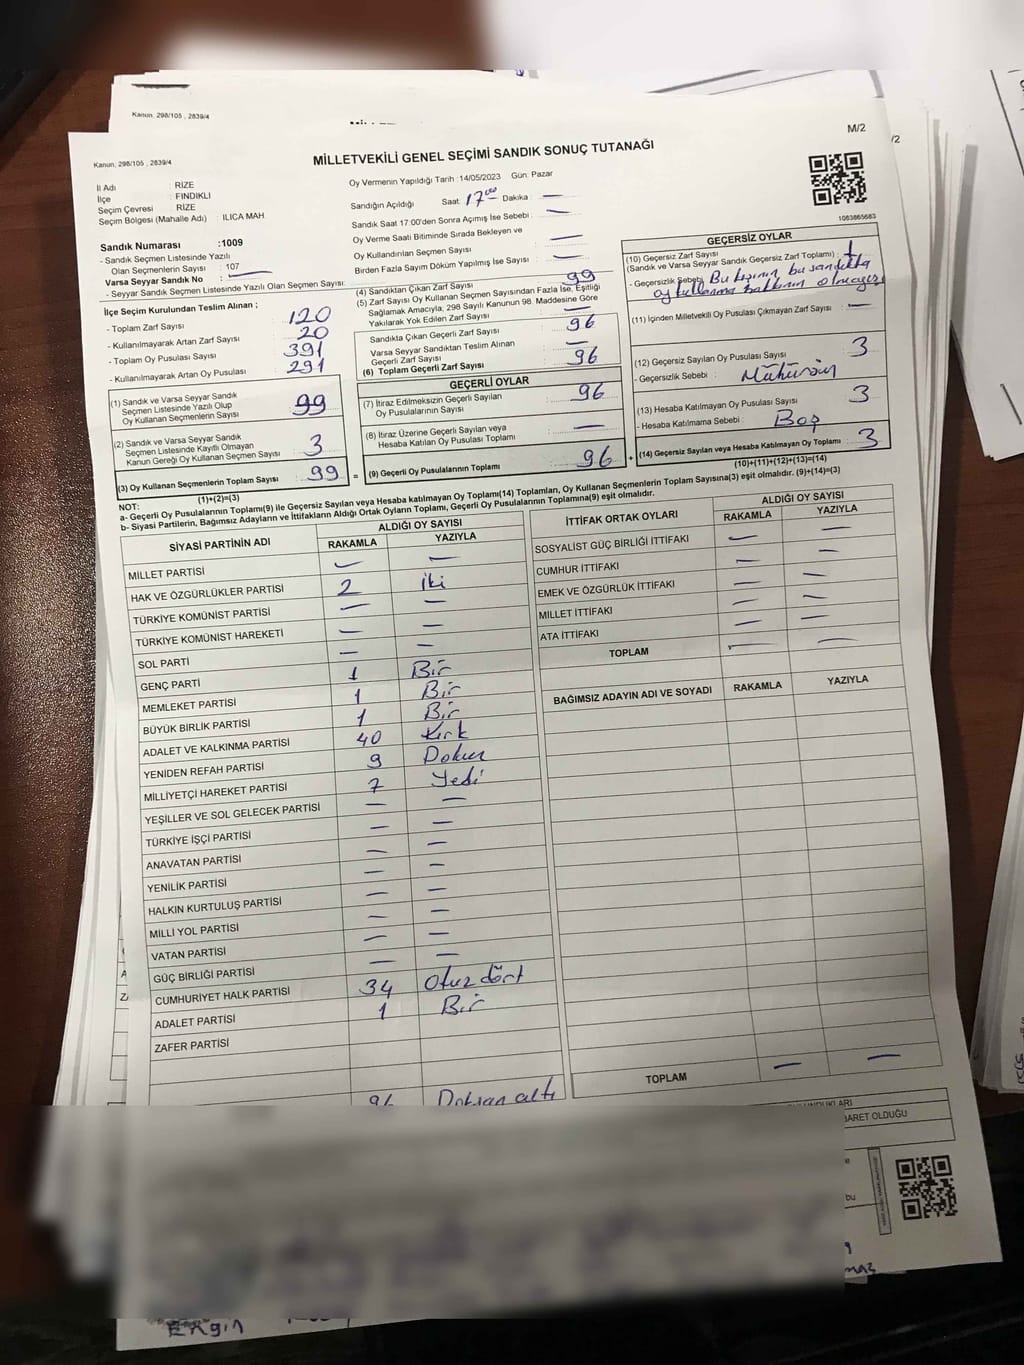 Kanun, 298/105 , 2839/4
M/2
/2
Kanun, 298/105 , 2839/4
MİLLETVEKİLİ GENEL SEÇİMİ SANDIK SONUÇ TUTANAĞI
İl Adı : RİZE
İlçe : FINDIKLI
Seçim Çevresi : RİZE
Seçim Bölgesi (Mahalle Adı) : ILICA MAH.
Sandık Numarası :1009
- Sandık Seçmen Listesinde Yazılı
Olan Seçmenlerin Sayısı : 107
Varsa Seyyar Sandık No :
- Seyyar Sandık Seçmen Listesinde Yazılı Olan Seçmen Sayısı:
Oy Vermenin Yapıldığı Tarih :14/05/2023 Gün: Pazar
Sandığın Açıldığı Saat: 17⁰⁰ Dakika : —
Sandık Saat 17:00'den Sonra Açılmış İse Sebebi : —
Oy Verme Saati Bitiminde Sırada Bekleyen ve
Oy Kullandırılan Seçmen Sayısı : —
Birden Fazla Sayım Döküm Yapılmış İse Sayısı : —
1083865683
İlçe Seçim Kurulundan Teslim Alınan ;
- Toplam Zarf Sayısı : 120
- Kullanılmayarak Artan Zarf Sayısı : 20
- Toplam Oy Pusulası Sayısı : 391
- Kullanılmayarak Artan Oy Pusulası : 291
(1) Sandık ve Varsa Seyyar Sandık
Seçmen Listesinde Yazılı Olup
Oy Kullanan Seçmenlerin Sayısı : 99
(2) Sandık ve Varsa Seyyar Sandık
Seçmen Listesinde Kayıtlı Olmayan
Kanun Gereği Oy Kullanan Seçmen Sayısı : 3
(3) Oy Kullanan Seçmenlerin Toplam Sayısı : 99
(1)+(2)=(3)
(4) Sandıktan Çıkan Zarf Sayısı : 99
(5) Zarf Sayısı Oy Kullanan Seçmen Sayısından Fazla İse, Eşitliği
Sağlamak Amacıyla, 298 Sayılı Kanunun 98. Maddesine Göre
Yakılarak Yok Edilen Zarf Sayısı : —
Sandıkta Çıkan Geçerli Zarf Sayısı : 96
Varsa Seyyar Sandıktan Teslim Alınan
Geçerli Zarf Sayısı : —
(6) Toplam Geçerli Zarf Sayısı : 96
GEÇERLİ OYLAR
(7) İtiraz Edilmeksizin Geçerli Sayılan
Oy Pusulalarının Sayısı : 96
(8) İtiraz Üzerine Geçerli Sayılan veya
Hesaba Katılan Oy Pusulası Toplamı : —
= (9) Geçerli Oy Pusulalarının Toplamı : 96
GEÇERSİZ OYLAR
(10) Geçersiz Zarf Sayısı
(Sandık ve Varsa Seyyar Sandık Geçersiz Zarf Toplamı) : 1
- Geçersizlik Sebebi : Bu kişinin bu sandıkta
oy kullanma hakkının olmayışı
(11) İçinden Milletvekili Oy Pusulası Çıkmayan Zarf Sayısı : —
(12) Geçersiz Sayılan Oy Pusulası Sayısı : 3
- Geçersizlik Sebebi : Mühürsün
(13) Hesaba Katılmayan Oy Pusulası Sayısı : 3
- Hesaba Katılmama Sebebi : Boş
+ (14) Geçersiz Sayılan veya Hesaba Katılmayan Oy Toplamı : 3
(10)+(11)+(12)+(13)=(14)
NOT:
a- Geçerli Oy Pusulalarının Toplamı(9) ile Geçersiz Sayılan veya Hesaba katılmayan Oy Toplamı(14) Toplamları, Oy Kullanan Seçmenlerin Toplam Sayısına(3) eşit olmalıdır. (9)+(14)=(3)
b- Siyasi Partilerin, Bağımsız Adayların ve İttifakların Aldığı Ortak Oyların Toplamı, Geçerli Oy Pusulalarının Toplamına(9) eşit olmalıdır.
SİYASİ PARTİNİN ADI ALDIĞI OY SAYISI
RAKAMLA YAZIYLA
MİLLET PARTİSİ — —
HAK VE ÖZGÜRLÜKLER PARTİSİ 2 iki
TÜRKİYE KOMÜNİST PARTİSİ — —
TÜRKİYE KOMÜNİST HAREKETİ — —
SOL PARTİ — —
GENÇ PARTİ 1 Bir
MEMLEKET PARTİSİ 1 Bir
BÜYÜK BİRLİK PARTİSİ 1 Bir
ADALET VE KALKINMA PARTİSİ 40 Kırk
YENİDEN REFAH PARTİSİ 9 Dokuz
MİLLİYETÇİ HAREKET PARTİSİ 7 Yedi
YEŞİLLER VE SOL GELECEK PARTİSİ — —
TÜRKİYE İŞÇİ PARTİSİ — —
ANAVATAN PARTİSİ — —
YENİLİK PARTİSİ — —
HALKIN KURTULUŞ PARTİSİ — —
MİLLİ YOL PARTİSİ — —
VATAN PARTİSİ — —
GÜÇ BİRLİĞİ PARTİSİ — —
CUMHURİYET HALK PARTİSİ 34 Otuz dört
ADALET PARTİSİ 1 Bir
ZAFER PARTİSİ
96 Doksan altı
İTTİFAK ORTAK OYLARI ALDIĞI OY SAYISI
RAKAMLA YAZIYLA
SOSYALİST GÜÇ BİRLİĞİ İTTİFAKI — —
CUMHUR İTTİFAKI — —
EMEK VE ÖZGÜRLÜK İTTİFAKI — —
MİLLET İTTİFAKI — —
ATA İTTİFAKI — —
TOPLAM — —
BAĞIMSIZ ADAYIN ADI VE SOYADI RAKAMLA YAZIYLA
TOPLAM — —
BARET OLDUĞU
bu
Ergin